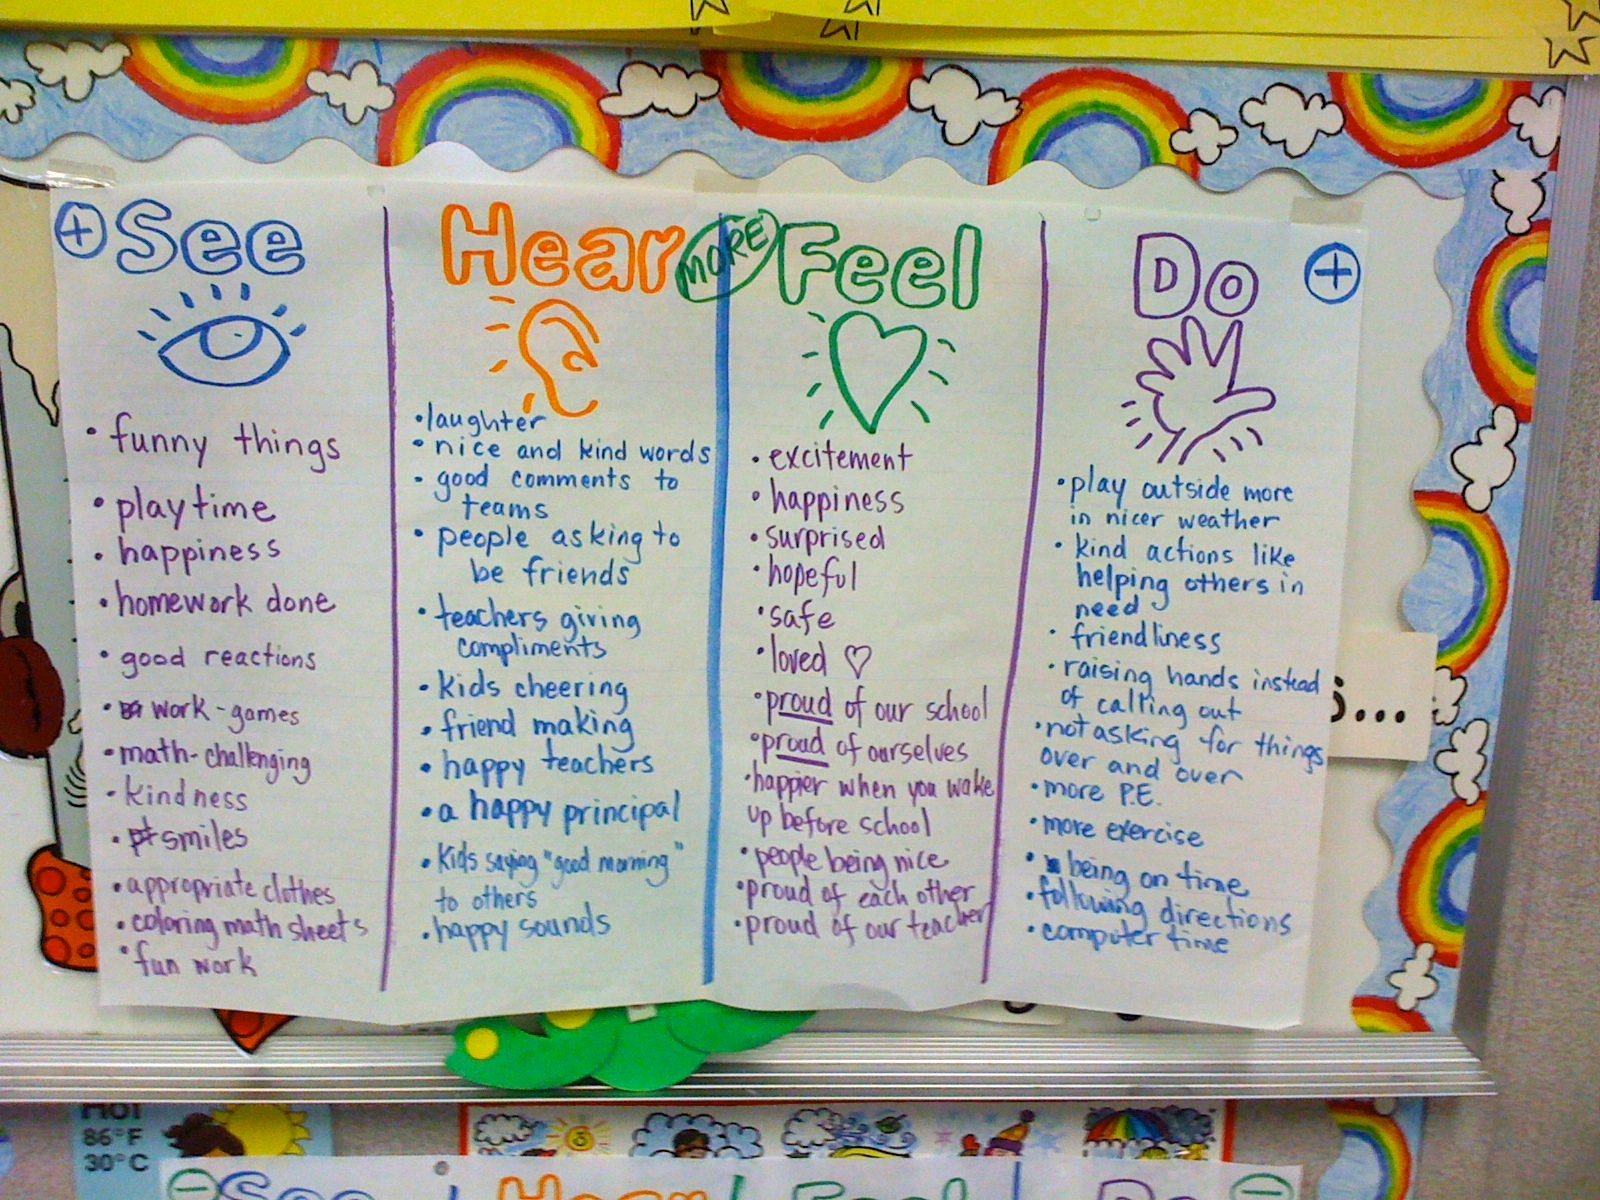 + See
funny things
• playtime
• happiness
• homework done
• good reactions
• work-games
• math-challenging
• kindness
• smiles
• appropriate clothes
• coloring math sheets
• fun work
Hear
• laughter
• nice and kind words
• good comments to
teams
• people asking to
be friends
• teachers giving
compliments
• kids cheering
• friend making
• happy teachers
• a happy principal
• kids saying "good morning"
to others
• happy sounds
MORE
Feel
• excitement
• happiness
• surprised
• hopeful
• safe
• loved ♡
• proud of our school
• proud of ourselves
• happier when you wake
up before school
• people being nice
• proud of each other
• proud of our teacher
Do +
• play outside more
in nicer weather
• kind actions like
helping others in
need
• friendliness
• raising hands instead
of calling out
• not asking for things
over and over
• more P.E.
• more exercise
• being on time
• following directions
• computer time
s...
Hot
86°F
30°C
3
− See
Hear
Feel
Do −